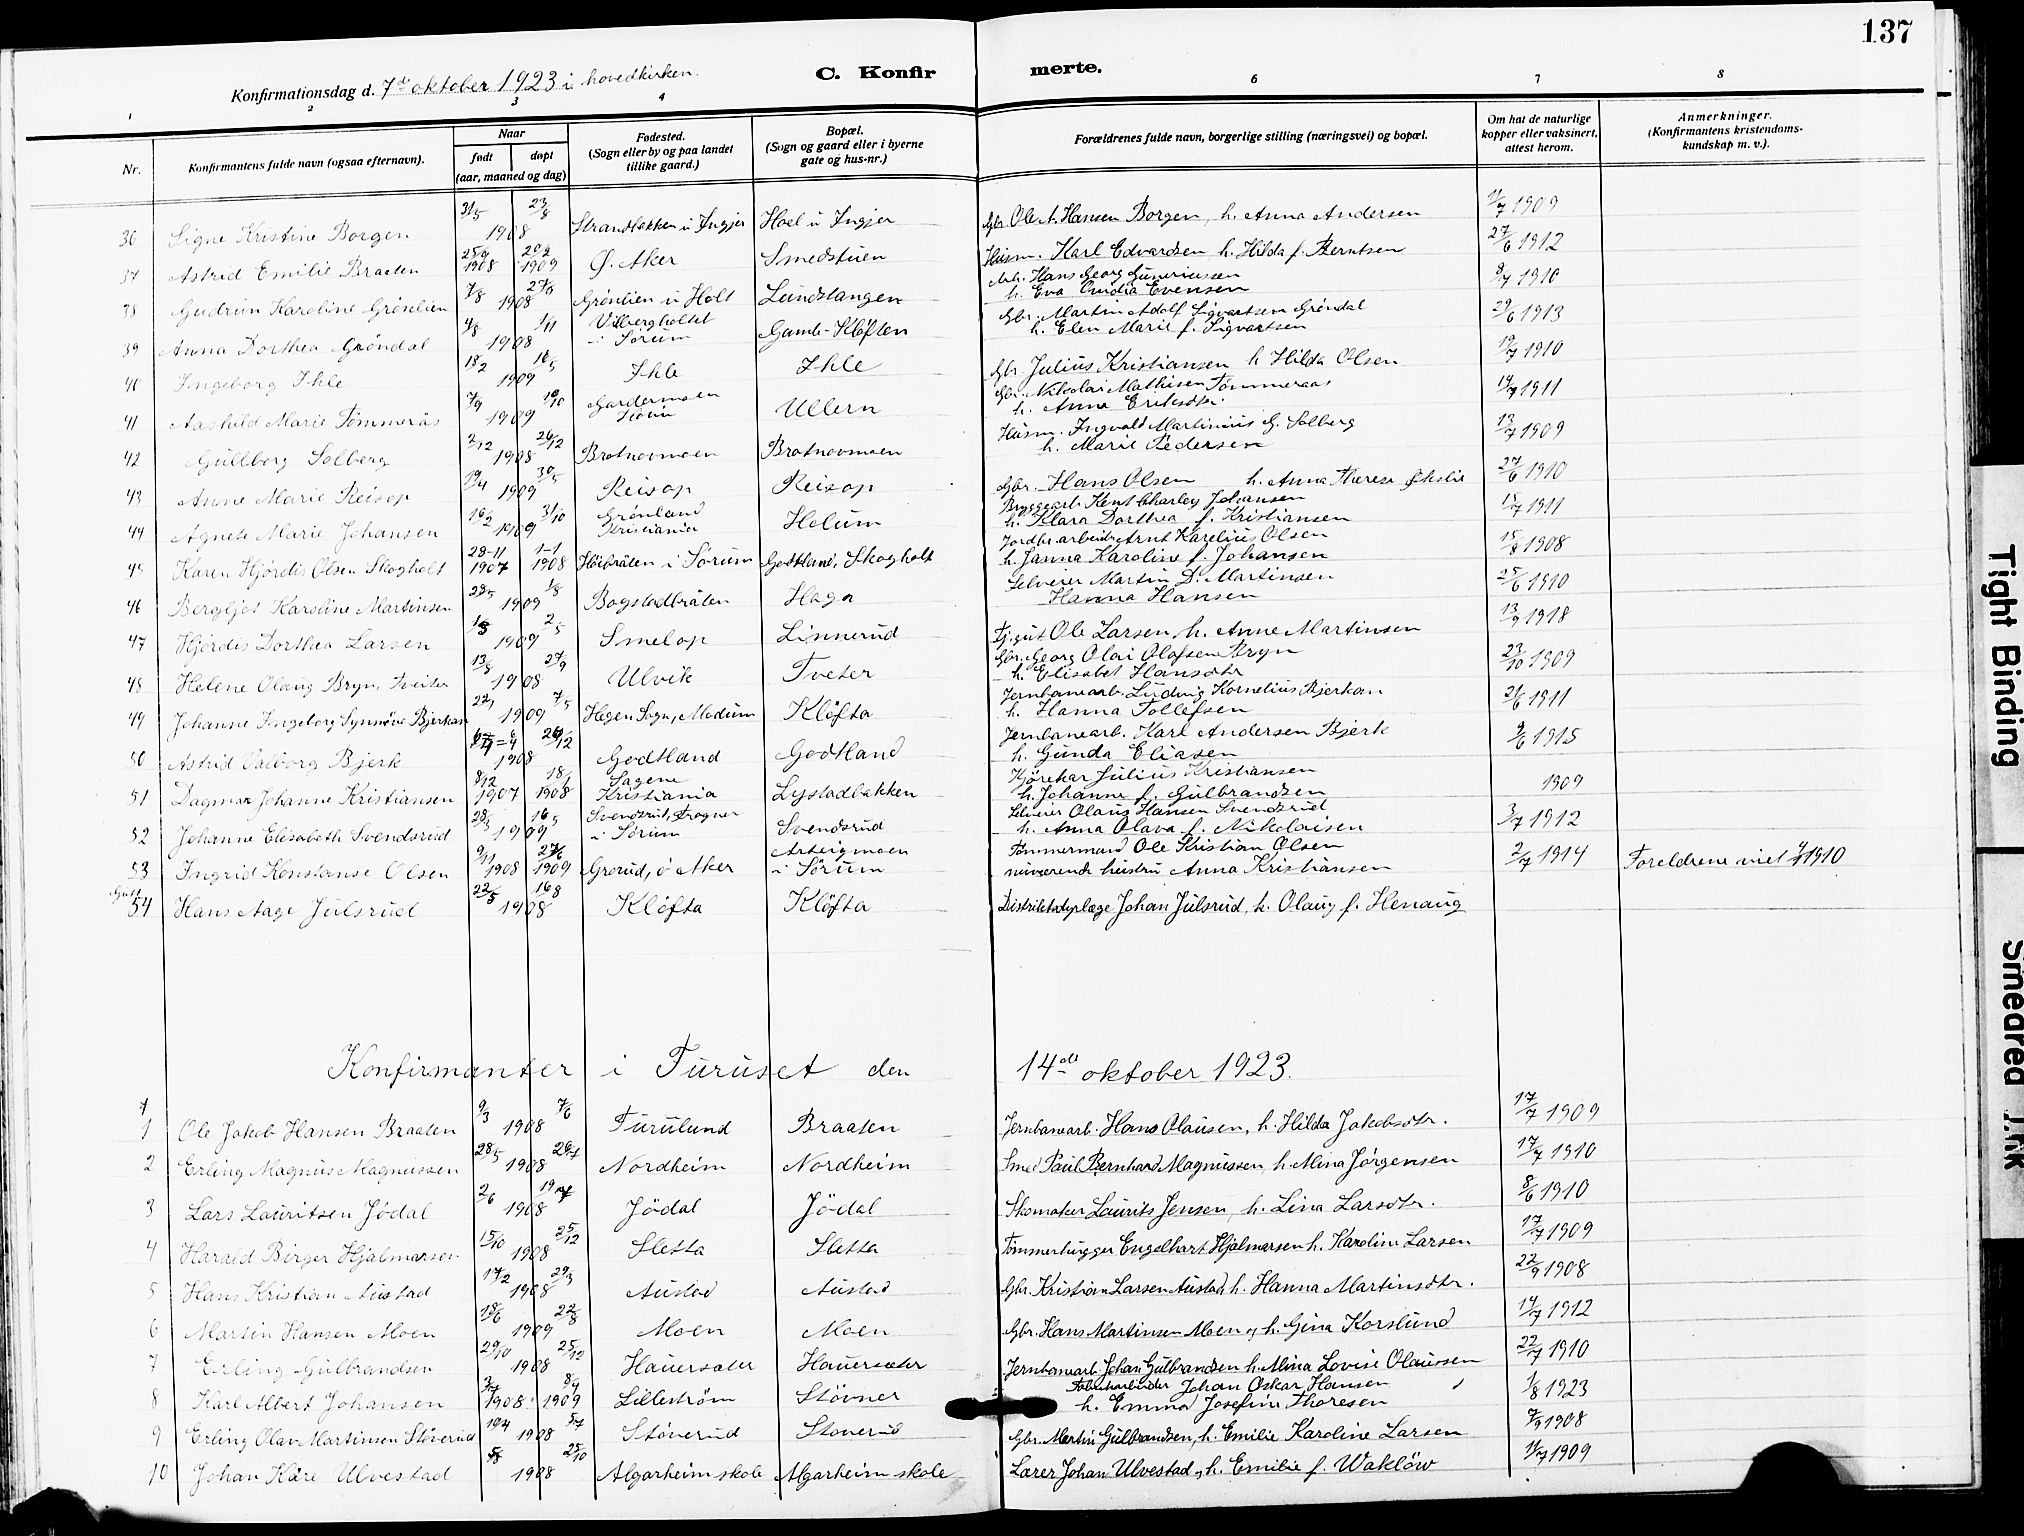 137
C. Konfirmerte.
Konfirmationsdag d. 7de oktober 1923 i hovedkirken.
1 2 3 4 6 7 8
Nr. | Konfirmantens fulde navn (ogsaa efternavn). | Naar født døpt (aar, maaned og dag) | Fødested. (Sogn eller by og paa landet tillike gaard.) | Bopæl. (Sogn og gaard eller i byerne gate og hus-nr.) | Forældrenes fulde navn, borgerlige stilling (næringsvei) og bopæl. | Om hat de naturlige kopper eller vaksinert, attest herom. | Anmerkninger. (Konfirmantens kristendoms-kundskap m. v.).
36 Signe Kristine Borgen 31/5 23/8 1908 Strandbakken u Ingjer Hoel u Ingjer Gbr. Ole A. Hansen Borgen, h. Anna Andersen 1909
37 Astrid Emilie Braaten 25/9 1908 20/2 1909 Ø. Aker Smedstuen Husm. Karl Edvardsen h. Hilda f. Berntsen 27/6 1912
38 Gudrun Karoline Grönlien 7/8 27/9 1908 Grönlien u Holt Lundstangen Arb. Hans Georg Guneriussen h. Eva Evensen 8/7 1910
39 Anna Dorthea Gröndal 4/8 1/11 1908 i Sörum Gamle-Klöften Gbr. Martin Adolf Sigvartsen Gröndal h. Elen Marie f. Sigvartsen 29/6 1913
40 Ingeborg Ihle 18/2 16/5 1909 Ihle Ihle Gbr. Julius Kristiansen h Hilda Olsen 19/7 1910
41 Aashild Marie Tömmerås 7/9 10/10 1909 Gardermoen Ullern Gbr. Nikolai Mathisen Tömmeraas h. Anna Eriksdtr. 14/9 1911
42 Gullborg Solberg 2/12 26/12 1908 Brotnovmoen Brotnovmoen Husm. Ingvald Martinius G. Solberg h. Marie Pedersen 13/7 1909
43 Anne Marie Reisop 19/4 30/5 1909 Reisop Reisop Gbr. Hans Olsen h. Anna Therese Økslie 27/6 1910
44 Agnete Marie Johansen 16/2 31/10 1909 Grönland Kristiania Holum Bryggearb. Kent Charley Johansen h. Klara Dorthea f. Kristiansen 15/7 1911
45 Karen Hjördis Olsen Skogholt 28-11 1907 1-1 1908 Höibråten i Sörum Godtland, Skogholt Jordbr.arbeider Arnt Karelius Olsen h. Janna Karoline f. Johansen 15/8 1908
46 Bergljot Karoline Martinsen 28/5 1/8 1909 Bogstadbråten Haga Selveier Martin D. Martinsen Hanna Hansen 25/6 1910
47 Hjördis Dorthea Larsen 2/5 1909 Smelop Linnerud Tj.gut Ole Larsen, h. Anne Martinsen 13/9 1918
48 Helene Olaug Bryn, Tveiter 13/8 27/9 1908 Ulvik Tveter Gbr. Georg Olai Olafsen Bryn h. Elisabet Hansdtr 23/10 1909
49 Johanne Ingeborg Synnöve Bjerkan 22/1 7/5 1909 Hegen Sogn, Modum Klöfta Jernbanearb. Ludvig Kornelius Bjerkan h. Hanna Tollefsen 21/6 1911
50 Astrid Valborg Bjerk 26/12 1908 Godtland Godtland Jernbanearb. Karl Andersen Bjerk h. Gunda Eliasen 9/6 1915
51 Dagmar Johanne Kristiansen 8/12 1907 18/1 1908 Sagene Kristiania Lystadbakken Kjörekar Julius Kristiansen h. Johanne f. Gulbrandsen 1909
52 Johanne Elisabeth Svendsrud 28/3 16/5 1909 Svendsrud, Frogner i Sörum Svendsrud Selveier Olaus Hansen Svendsrud h. Anna Olava f. Nikolaisen 3/7 1912
53 Ingrid Konstanse Olsen 9/11 1908 27/6 1909 Grorud, ö Aker Asbeigmoen i Sörum Tömmermand Ole Kristian Olsen nuværende hustru Anna Kristiansen 2/7 1914 Foreldrene viet 1910
Gutt
54 Hans Aage Julsrud 22/5 16/8 1908 Klöfta Klöfta Distriktslege Johan Julsrud, h. Olaug f. Henaug
Konfirmanter i Furuset den 14de oktober 1923.
1 Ole Jakob Hansen Braaten 9/3 7/6 1908 Furulund Braaten Jernbanearb. Hans Olausen, h. Hilda Jakobsdtr. 17/7 1909
2 Erling Magnus Magnussen 28/5 26/7 1908 Nordheim Nordheim Smed Paul Bernhard Magnussen h. Mina Jörgensen 17/7 1910
3 Lars Lauritsen Jödal 2/6 19/7 1908 Jödal Jödal Skomaker Laurits Jensen, h. Lina Larsdtr. 8/6 1910
4 Harald Birger Hjalmarsen 15/10 25/12 1908 Sletta Sletta Tömmerhugger Engelhart Hjalmarsen h. Karoline Larsen 17/7 1909
5 Hans Kristian Austad 17/2 29/3 1908 Austad Austad Gbr. Kristian Larsen Austad h. Hanna Martinsdtr. 22/9 1908
6 Martin Hansen Moen 18/6 22/8 1909 Moen Moen Gbr. Hans Martinsen Moen og h. Gina Korslund 14/7 1912
7 Erling Gulbrandsen 29/10 25/12 1908 Hauersæter Hauersæter Jernbanearb. Johan Gulbrandsen h. Mina Lovise Olaussen 22/7 1910
8 Karl Albert Johansen 1908 1909 Lilleström Stövner Fabrikarbeider Johan Oskar Hansen h. Emma Josefine Thoresen 1/8 1923
9 Erling Olav Martinsen Stöverud 19/4 5/7 1908 Stöverud Stoverud Gbr. Martin Gulbrandsen, h. Emilie Karoline Larsen 7/9 1908
10 Johan Kåre Ulvestad 25/10 1908 Algarheim skole Algarheim skole Lærer Johan Ulvestad og h. Emilie f. Waklöw 1909
Tight Binding
Smeared Ink